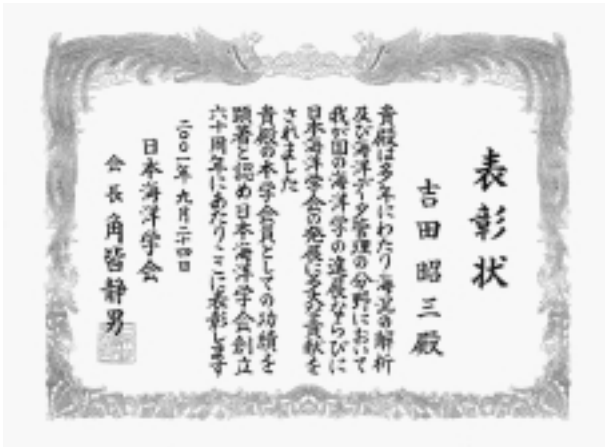 表彰状
吉田昭三殿
貴殿は多年にわたり海況の解析
及び海洋データ管理の分野において
我が国の海洋学の進展ならびに
日本海洋学会の発展に多大な貢献を
されました
貴殿の本学会員としての功績を
顕著と認め日本海洋学会創立
六十周年にあたりここに表彰します
二〇〇一年九月二十四日
日本海洋学会
会長角皆静男